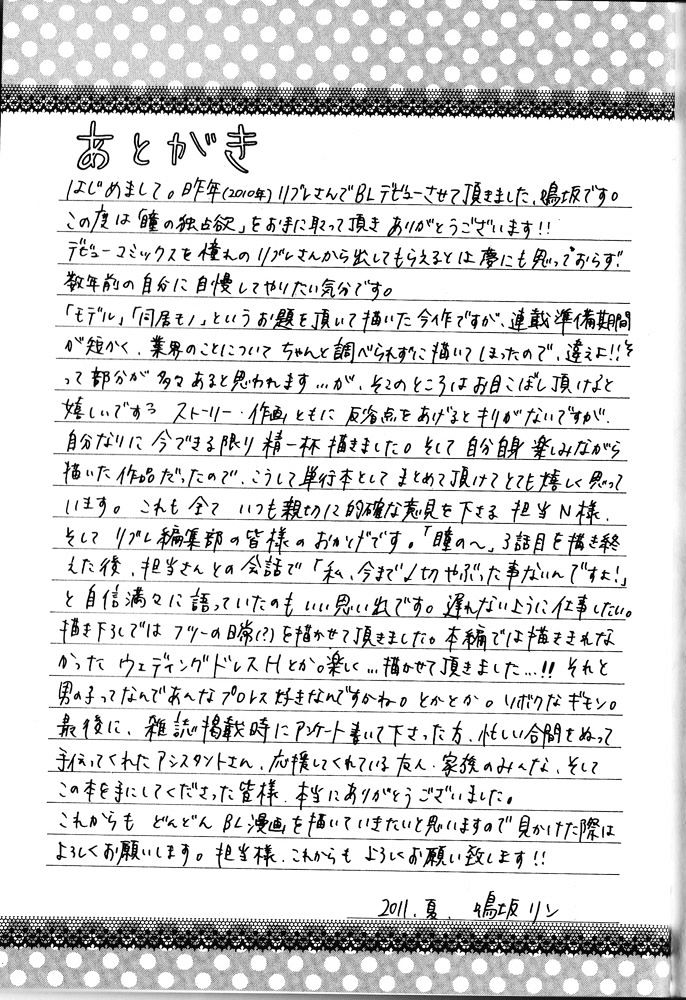 あとがき
はじめまして。昨年(2010年)リブレさんでBLデビューさせて頂きました、鳴坂です。
この度は「瞳の独占欲」をお手に取って頂きありがとうございます!!
デビューコミックスを憧れのリブレさんから出してもらえるとは夢にも思っておらず!
数年前の自分に自慢してやりたい気分です。
「モデル」「同居モノ」というお題を頂いて描いた今作ですが、連載準備期間
が短かく、業界のことについてちゃんと調べられずに描いてしまったので、違えよ!!そ
って部分が多々あると思われます…が、そこのところはお目こぼし頂けると
嬉しいです ストーリー・作画ともに反省点をあげるとキリがないですが、
自分なりに今できる限り精一杯描きました。そして自分自身楽しみながら
描いた作品だったので、こうして単行本としてまとめて頂けてとても嬉しく思って
います。これも全ていつも親切に的確な意見を下さる担当N様、
そしてリブレ編集部の皆様のおかげです。「瞳の〜」3話目を描き終
えた後、担当さんとの会話で「私、今まで〆切やぶった事ないんですよ!」
と自信満々に語っていたのもいい思い出です。遅れないように仕事したい。
描き下ろしではフツーの日常(?)を描かせて頂きました。本編では描ききれな
かったウェディングドレスHとか。楽しく…描かせて頂きました…!!それと
男の子ってなんであんなプロレス好きなんですかね。とかとか。ソボクなギモン。
最後に、雑誌掲載時にアンケート書いて下さった方、忙しい合間をぬって
手伝ってくれたアシスタントさん、応援してくれている友人・家族のみんな、そして
この本を手にしてくださった皆様、本当にありがとうございました。
これからもどんどんBL漫画を描いていきたいと思いますので見かけた際は
よろしくお願いします。担当様、これからもよろしくお願い致します!!
2011.夏. 鳴坂リン